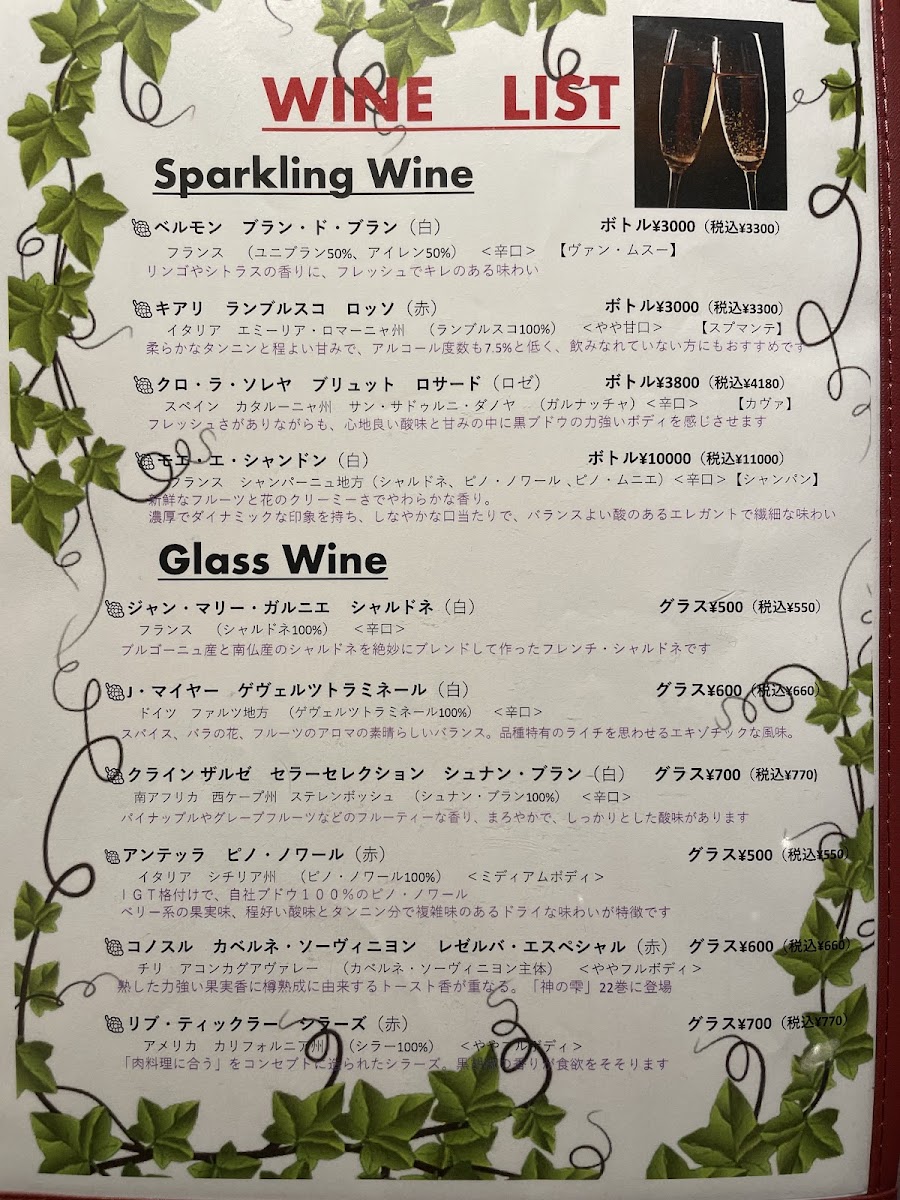 WINE LIST
Sparkling Wine
ベルモン ブラン・ド・ブラン（白） ボトル¥3000（税込¥3300）
フランス （ユニブラン50%、アイレン50%） ＜辛口＞ 【ヴァン・ムスー】
リンゴやシトラスの香りに、フレッシュでキレのある味わい
キアリ ランブルスコ ロッソ（赤） ボトル¥3000（税込¥3300）
イタリア エミーリア・ロマーニャ州 （ランブルスコ100%） ＜やや甘口＞ 【スプマンテ】
柔らかなタンニンと程よい甘みで、アルコール度数も7.5%と低く、飲みなれていない方にもおすすめです
クロ・ラ・ソレヤ ブリュット ロサード（ロゼ） ボトル¥3800（税込¥4180）
スペイン カタルーニャ州 サン・サドゥルニ・ダノヤ （ガルナッチャ）＜辛口＞ 【カヴァ】
フレッシュさがありながらも、心地良い酸味と甘みの中に黒ブドウの力強いボディを感じさせます
モエ・エ・シャンドン（白） ボトル¥10000（税込¥11000）
フランス シャンパーニュ地方（シャルドネ、ピノ・ノワール 、ピノ・ムニエ）＜辛口＞【シャンパン】
新鮮なフルーツと花のクリーミーさでやわらかな香り。
濃厚でダイナミックな印象を持ち、しなやかな口当たりで、バランスよい酸のあるエレガントで繊細な味わい
Glass Wine
ジャン・マリー・ガルニエ シャルドネ（白） グラス¥500（税込¥550）
フランス （シャルドネ100%） ＜辛口＞
ブルゴーニュ産と南仏産のシャルドネを絶妙にブレンドして作ったフレンチ・シャルドネです
J・マイヤー ゲヴェルツトラミネール（白） グラス¥600（税込¥660）
ドイツ ファルツ地方 （ゲヴェルツトラミネール100%） ＜辛口＞
スパイス、バラの花、フルーツのアロマの素晴らしいバランス。品種特有のライチを思わせるエキゾチックな風味。
クライン ザルゼ セラーセレクション シュナン・ブラン（白） グラス¥700（税込¥770)
南アフリカ 西ケープ州 ステレンボッシュ （シュナン・ブラン100%） ＜辛口＞
パイナップルやグレープフルーツなどのフルーティーな香り、まろやかで、しっかりとした酸味があります
アンテッラ ピノ・ノワール（赤） グラス¥500（税込¥550）
イタリア シチリア州 （ピノ・ノワール100%） ＜ミディアムボディ＞
ＩＧＴ格付けで、自社ブドウ１００％のピノ・ノワール
ベリー系の果実味、程好い酸味とタンニン分で複雑味のあるドライな味わいが特徴です
コノスル カベルネ・ソーヴィニヨン レゼルバ・エスペシャル（赤） グラス¥600（税込¥660）
チリ アコンカグアヴァレー （カベルネ・ソーヴィニヨン主体） ＜ややフルボディ＞
熟した力強い果実香に樽熟成に由来するトースト香が重なる。「神の雫」22巻に登場
リブ・ティックラー シラーズ（赤） グラス¥700（税込¥770）
アメリカ カリフォルニア州 （シラー100%） ＜ややフルボディ＞
「肉料理に合う」をコンセプトに造られたシラーズ。黒 の香りが食欲をそそります